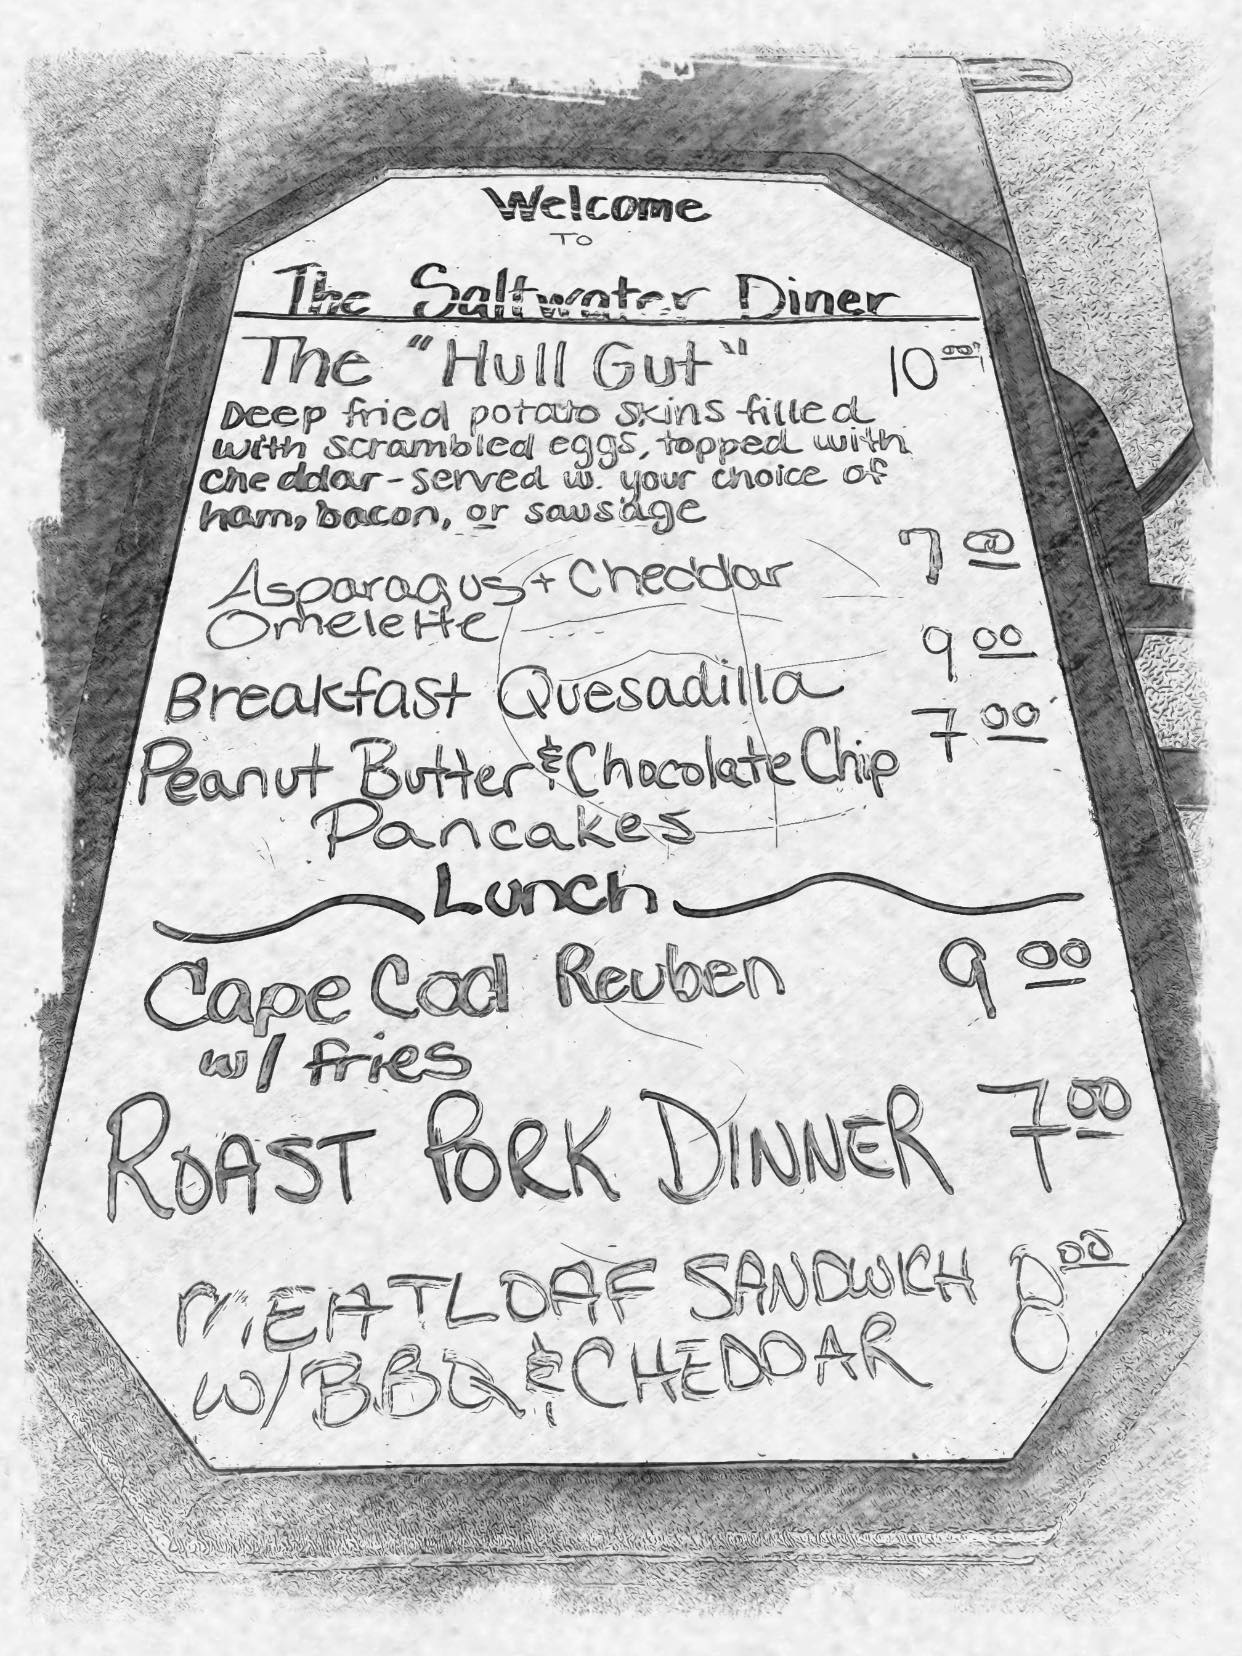 Welcome
TO
The Saltwater Diner
The "Hull Gut" 10.00
Deep fried potato skins filled
with scrambled eggs, topped with
cheddar - served w. your choice of
ham, bacon, or sausage
Asparagus + Cheddar 7 00
Omelette
Breakfast Quesadilla 9 00
Peanut Butter & Chocolate Chip 7 00
Pancakes
Lunch
Cape Cod Reuben 9 00
w/ fries
ROAST PORK DINNER 7 00
MEATLOAF SANDWICH 8 00
w/ BBQ & CHEDDAR